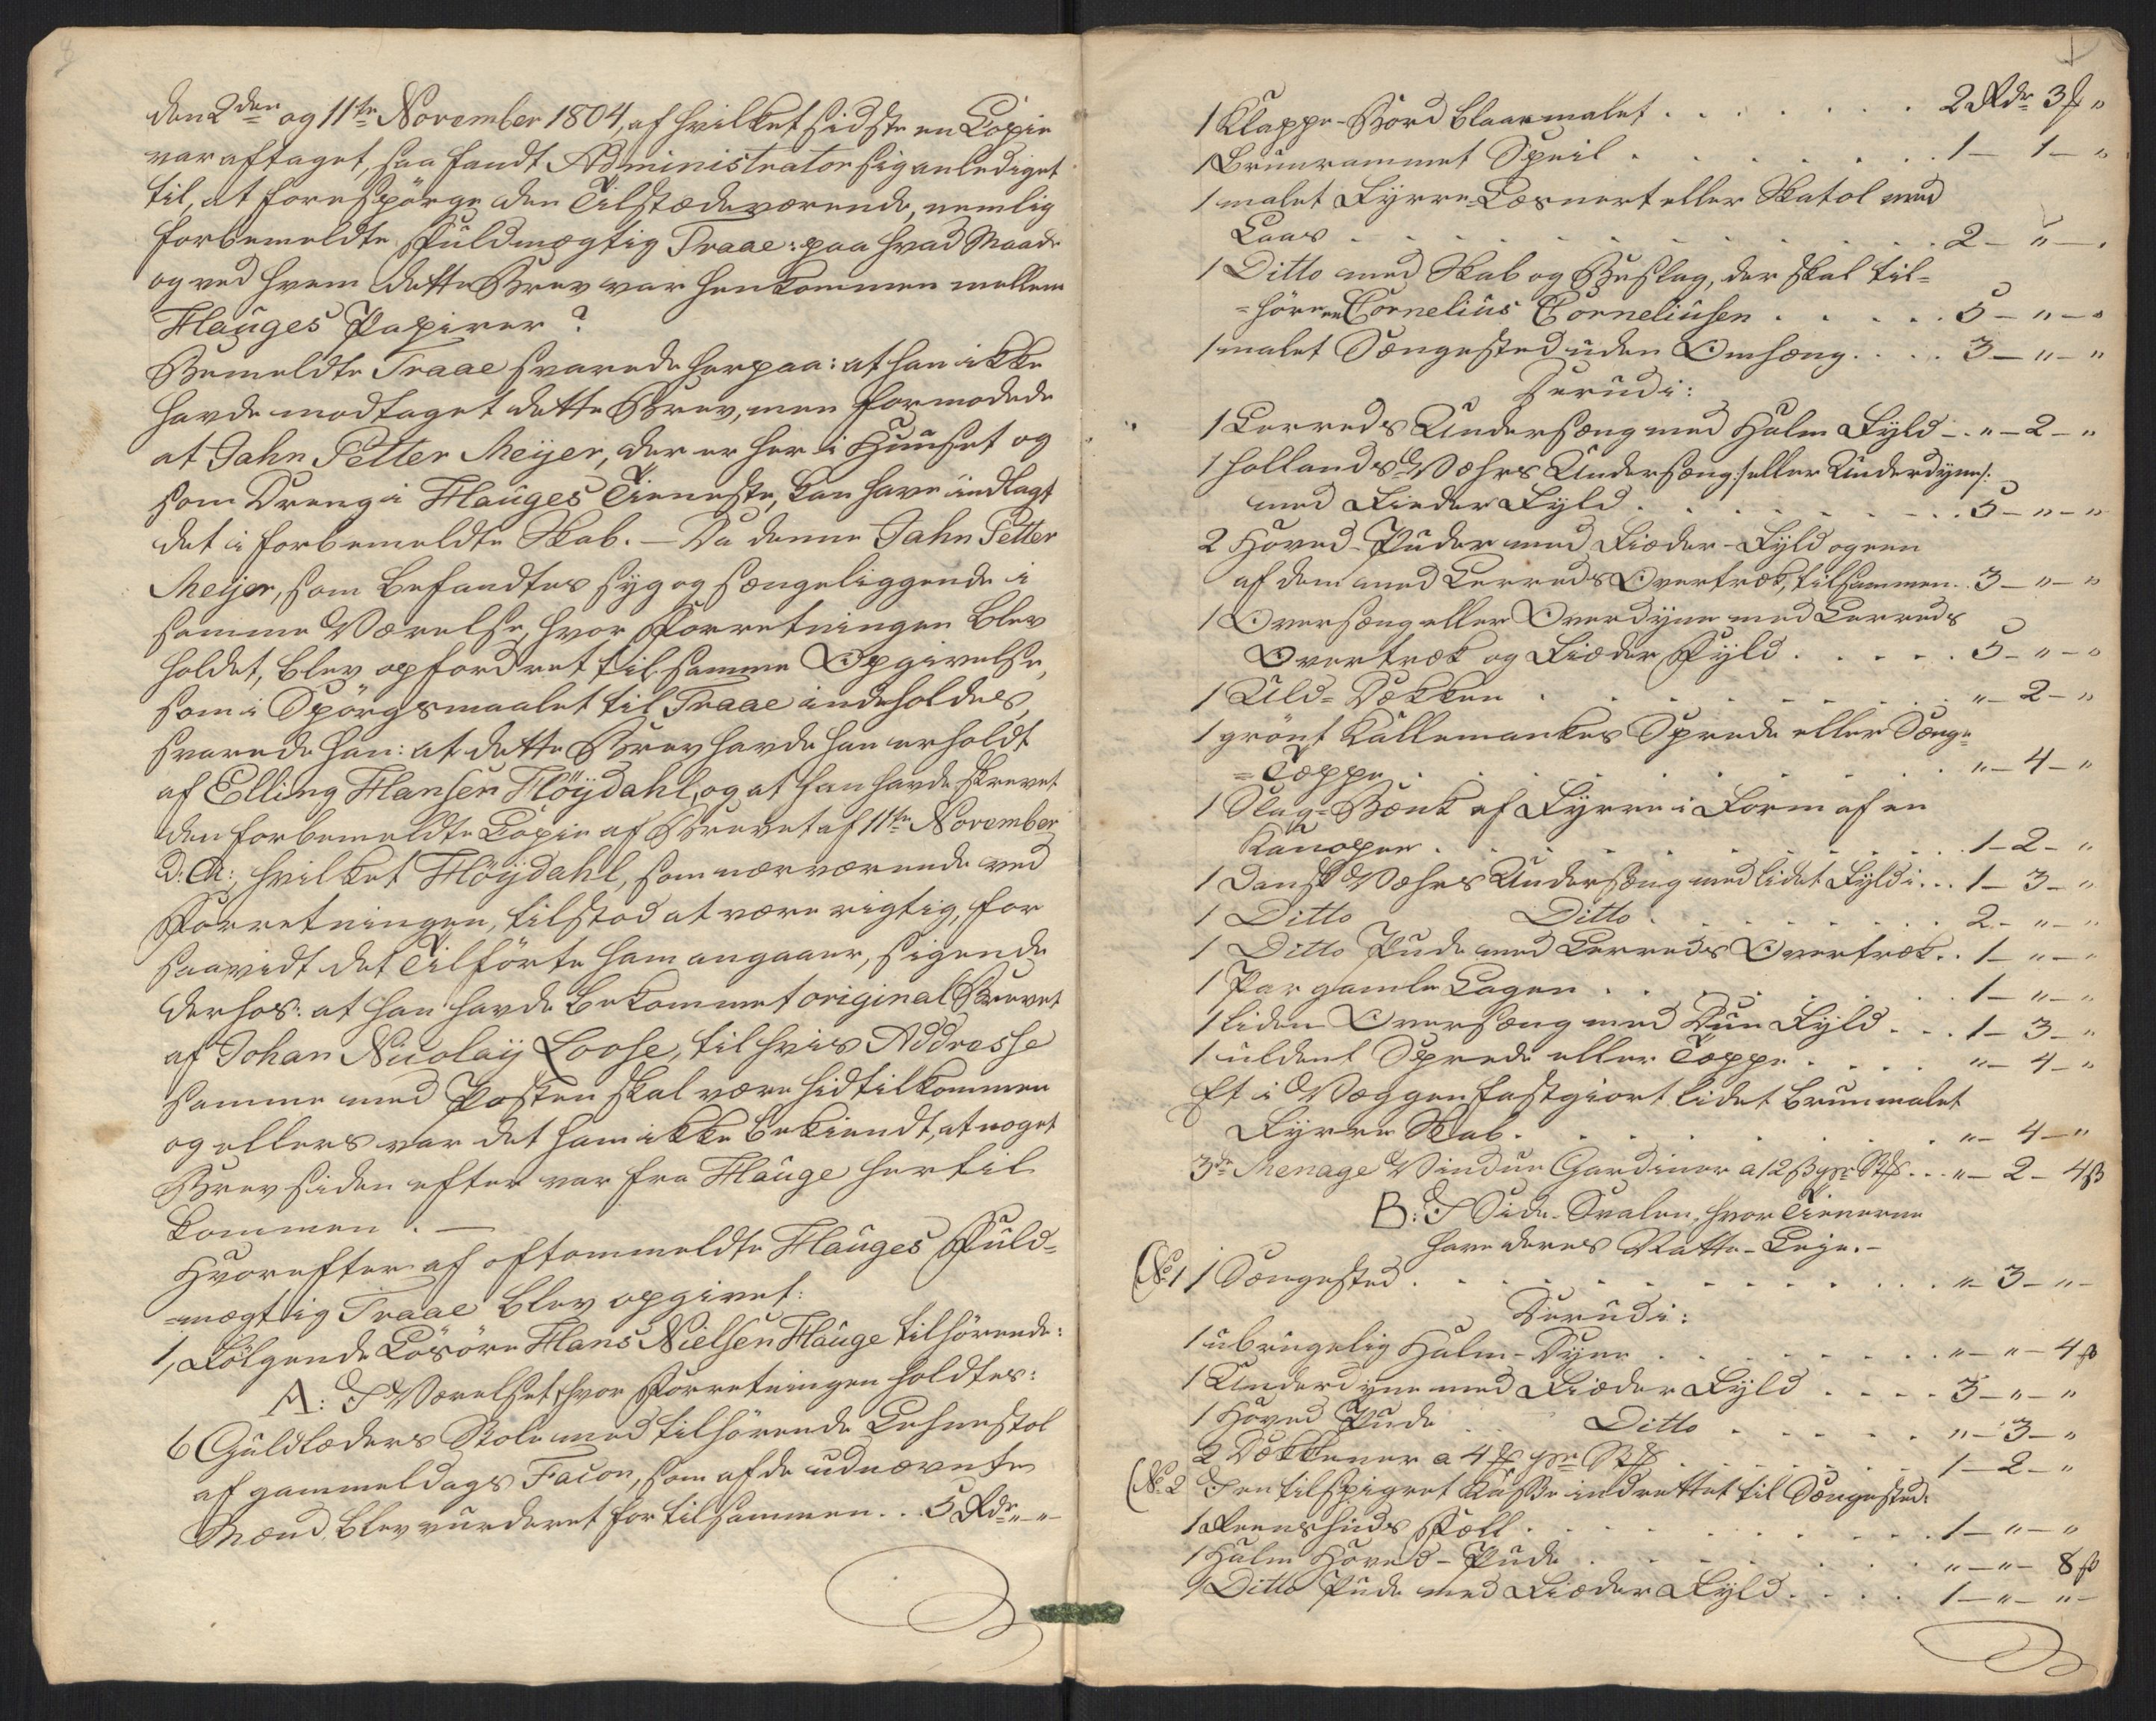 8
den 2den og 11te November 1804, af hvilket sidste en Copie
var aftaget, saa fandt Administrator sig anlediget
til, at forespörge den Tilstædeværende, nemlig
forbemeldte Fuldmægtig Traae: paa hvad Maade
og ved hvem dette Brev var henkommen mellem
Hauges Papirer?
Bemeldte Traae svarede herpaa: at han ikke
havde modtaget dette Brev, men formodede
at Jahn Petter Meijer, der er her i Huuset og
som Dreng i Hauges Tieneste, kan have indlagt
det i forbemeldte Skab. — Da denne Jahn Petter
Meijer, som befandtes syg og sængeliggende i
samme Værelse, hvor Forretningen blev
holdet, blev opfordret til samme Opgivelse,
som i Spörgsmaalet til Traae indeholdes,
svarede han: at dette Brev havde han erholdt
af Elling Hansen Höydahl, og at han havde skrevet
den forbemeldte Copie af Brevet af 11te November
d: A:, hvilket Höijdahl, som nærværende ved
Forretningen, tilstod at være rigtig, for
saavidt det Tilförte ham angaaer, sigende
derhos: at han havde bekommet original Brevet
af Johan Nicolaij Loose, til hvis Addresse
samme med Posten skal være hidtilkommen
og ellers var det ham ikke bekiendt, at noget
Brev siden efter var fra Hauge hertil
kommen. —
Hvorefter af oftommeldte Hauges Fuld=
=mægtig Traae blev opgivet:
1, Fölgende Lösöre Hans Nielsen Hauge tilhörende:
A: I Værelset, hvor Forretningen holdtes:
6 Guldlæders Stole med tilhörende Lehnestol
af gammeldags Facon, som af de udnævnte
Mænd blev vurderet for tilsammen . . 5 Rdr „ „
1 Klappe-Bord blaaemalet . . . . . . 2 Rdr 3 ₰ „
1 Brunrammet Speil . . . . . . . 1 — 1 — „
1 malet Fyrre-Cosnert eller Skatol med
Laas . . . . . . . . . . 2 — „ — „
1 Ditto med Skab og Beslag, der skal til=
=hören Cornelius Corneliusen . . . . . 5 — „ — „
1 malet Sængested uden Omhæng . . . . 3 — „ — „
Derudi:
1 Lerreds Undersæng med Halm Fyld - . „ — 2 — „
1 hollandsk Vahrs Undersæng /: eller Underdyne :/
med Fieder Fyld . . . . . . . . 5 — „ — „
2 Hoved-Puder med Fiæder-Fyld og een
af dem med Lerreds Overtræk, tilsammen . 3 — „ — „
1 Oversæng eller Overdyne med Lerreds
Overtræk og Fiæder Fyld . . . . . 5 — „ — „
1 Uld-Dækken . . . . . . . . „ — 2 — „
1 grönt Kallemankes Sprede eller Senge=
=Tæppe . . . . . . . . . „ — 4 — „
1 Slag-Bænk af Fyrre i Form af en
Kanopee . . . . . . . . . . 1 — 2 — „
1 Dansk Vahrs Undersæng med lidet Fyld i . . . 1 — 3 — „
1 Ditto Ditto . . . . . . . 2 — „ — „
1 Ditto Pude med Lerreds Overtræk . . 1 — „ — „
1 Par gamle Lagen . . . . . . . 1 — „ — „
1 liden Oversæng med Duun Fyld . . . 1 — 3 — „
1 uldent Sprede eller Tæppe . . . . „ — 4 — „
Et i Væggen fastgiort lidet brunmalet
Fyrre Skab . . . . . . . . . „ — 4 — „
3de Menage Vindue Gardiner a 12 ß pr Stk . . . „ — 2 — 4 ß
B: I Side-Svalen, hvor Tienerne
have deres Natte-Leje. —
(No 1 1 Sængested . . . . . . . . . „ — 3 — „ —
Derudi:
1 ubrugelig Halm-Dyne . . . . . . . „ — „ — 4 ß
1 Underdyne med Fiæder Fyld . . . . 3 — „ — „
1 Hoved Pude Ditto . . . . . „ — 3 — „
2 Dækkener a 4 ₰ pr Stk . . . . . . 1 — 2 — „
(No 2 I en tilspigret Kasse indrettet til Sængested:
1 Reenshuds Fæll . . . . . . . . 1 — „ — „
1 Halm Hoved-Pude . . . . . . . „ — „ — 8 ß
1 Ditto Pude med Fiæder Fyld . . . . 1 — „ — „ —